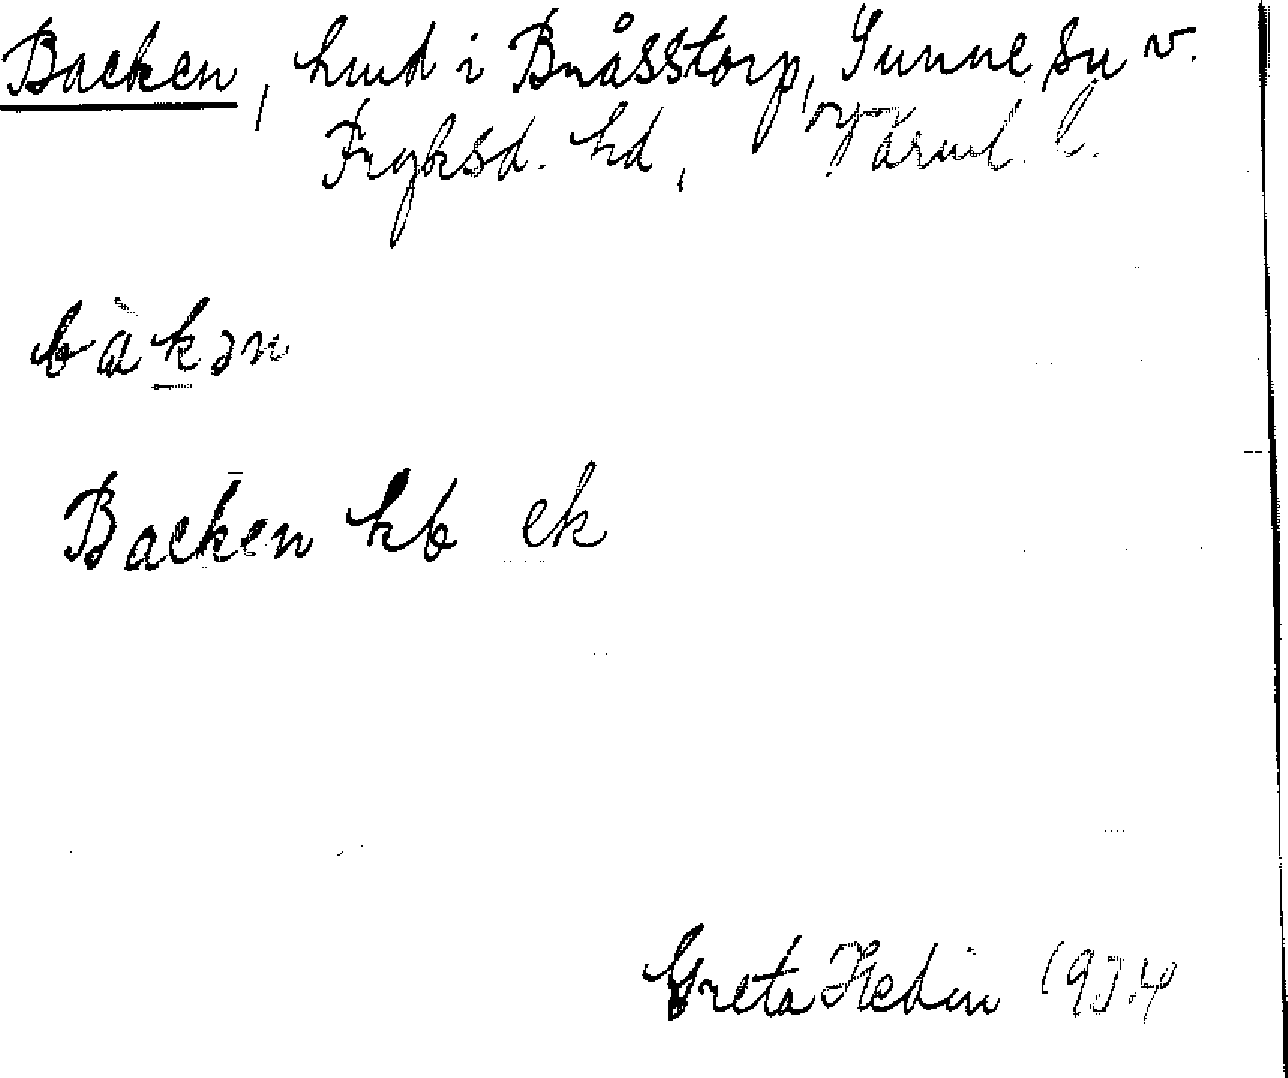 Backen, hmd i Bråsstorp, Sunne sn v.
Fryksd. hd, Värml. l.
bàkən
Backen kb ek
Greta Hedin 1934